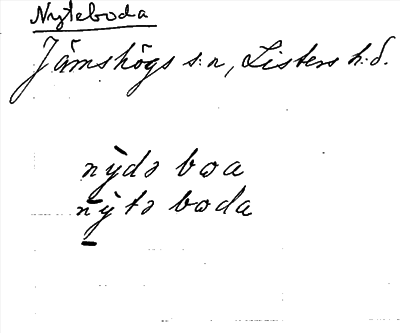 Nyteboda
Jämshögs s:n, Listers h.d.
nỳdə bωa
nỳtə bωda